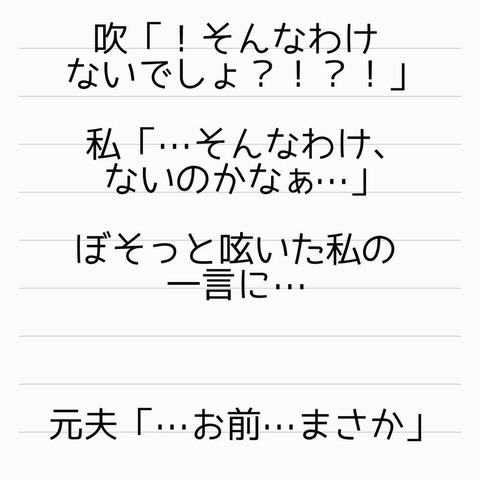 吹「！そんなわけ
ないでしょ？！？！」
私「…そんなわけ、
ないのかなぁ…」
ぼそっと呟いた私の
一言に…
元夫「…お前…まさか」